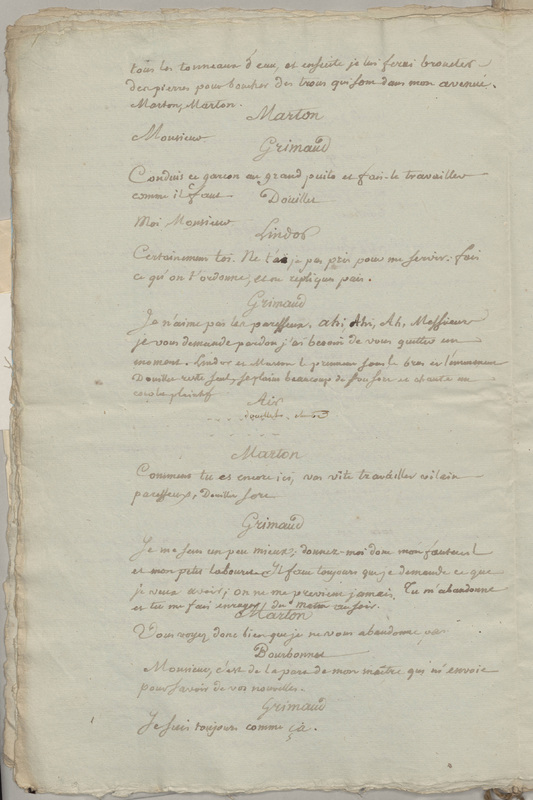 tous les tonneaux d'eau, et ensuite je lui ferai brouetter
des pierres pour boucher des trous qui sont dans mon avenüe.
Marton, Marton.
Marton
Monsieur
Grimaud
Conduis ce garçon au grand puits et fais-le travailler
comme il faut.
Douillet
Moi Monsieur
Lindor
Certainement toi. Ne t'ai je pas pris pour me servir. fais
ce qu'on t'ordonne, et ne replique pas.
Grimaud
Je n'aime pas les paresseux. ahi, Ahi, Ah, Messieurs
je vous demande pardon j'ai besoin de vous quitter un
moment. Lindor et Marton le prennent sous le bras et l'emmenent
Douillet reste seul, se plaint beaucoup de son sort et chante un
couplet plaintif
Air
Douillet
Marton
Comment tu es encore ici, vas vite travailler vilain
paresseux, Douillet sort
Grimaud
Je me sens un peu mieux, donnez-moi donc mon fauteuil
et mon petit tabouret. Il faut toujours que je demande ce que
je veux avoir; on ne me previent jamais. Tu m'abandonne
et tu me fais enrager du matin au soir.
Marton
Vous voyez donc bien que je ne vous abandonne pas
Bourbonnet
Monsieur, c'est de la part de mon maître qui m'envoie
pour savoir de vos nouvelles.
Grimaud
Je suis toujours comme çà.